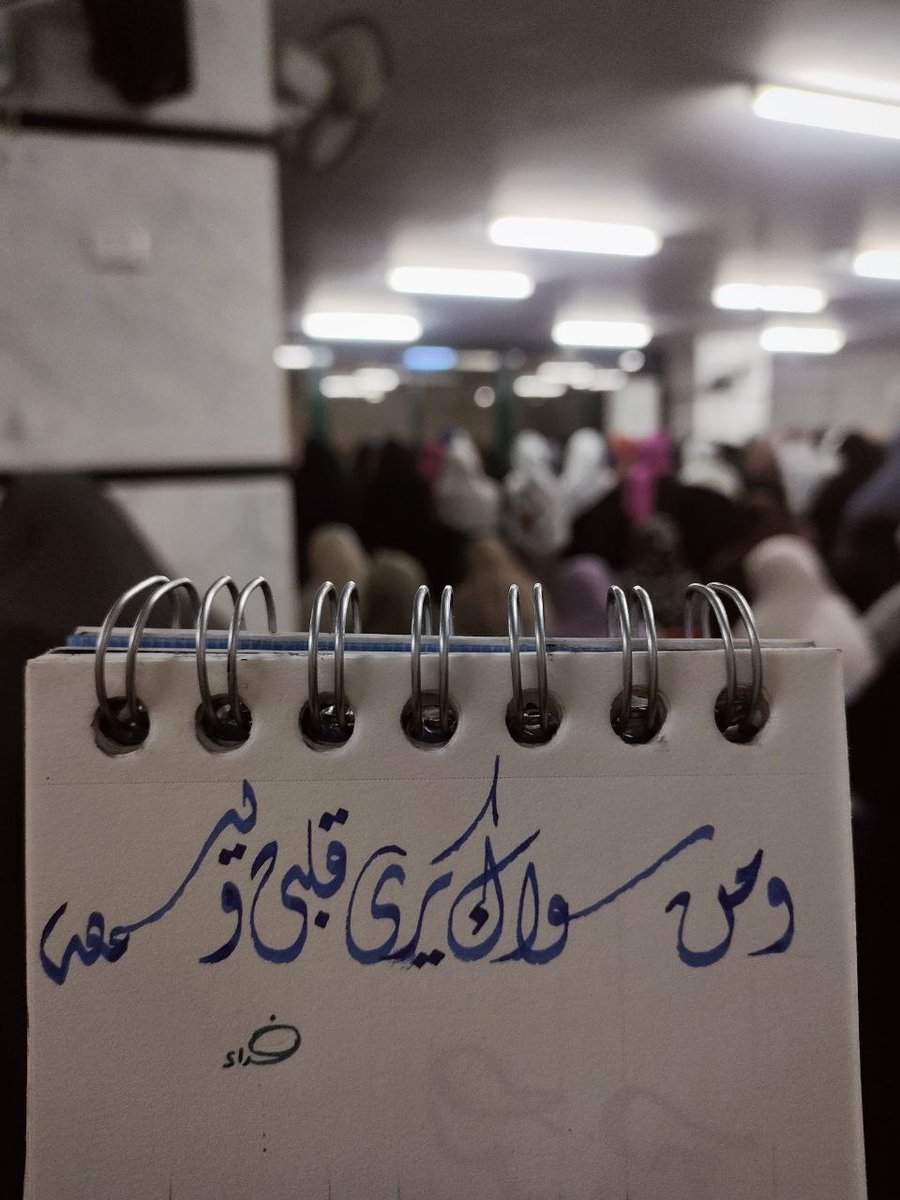 ومن سواك يرى قلبي ويسمعه
فداء